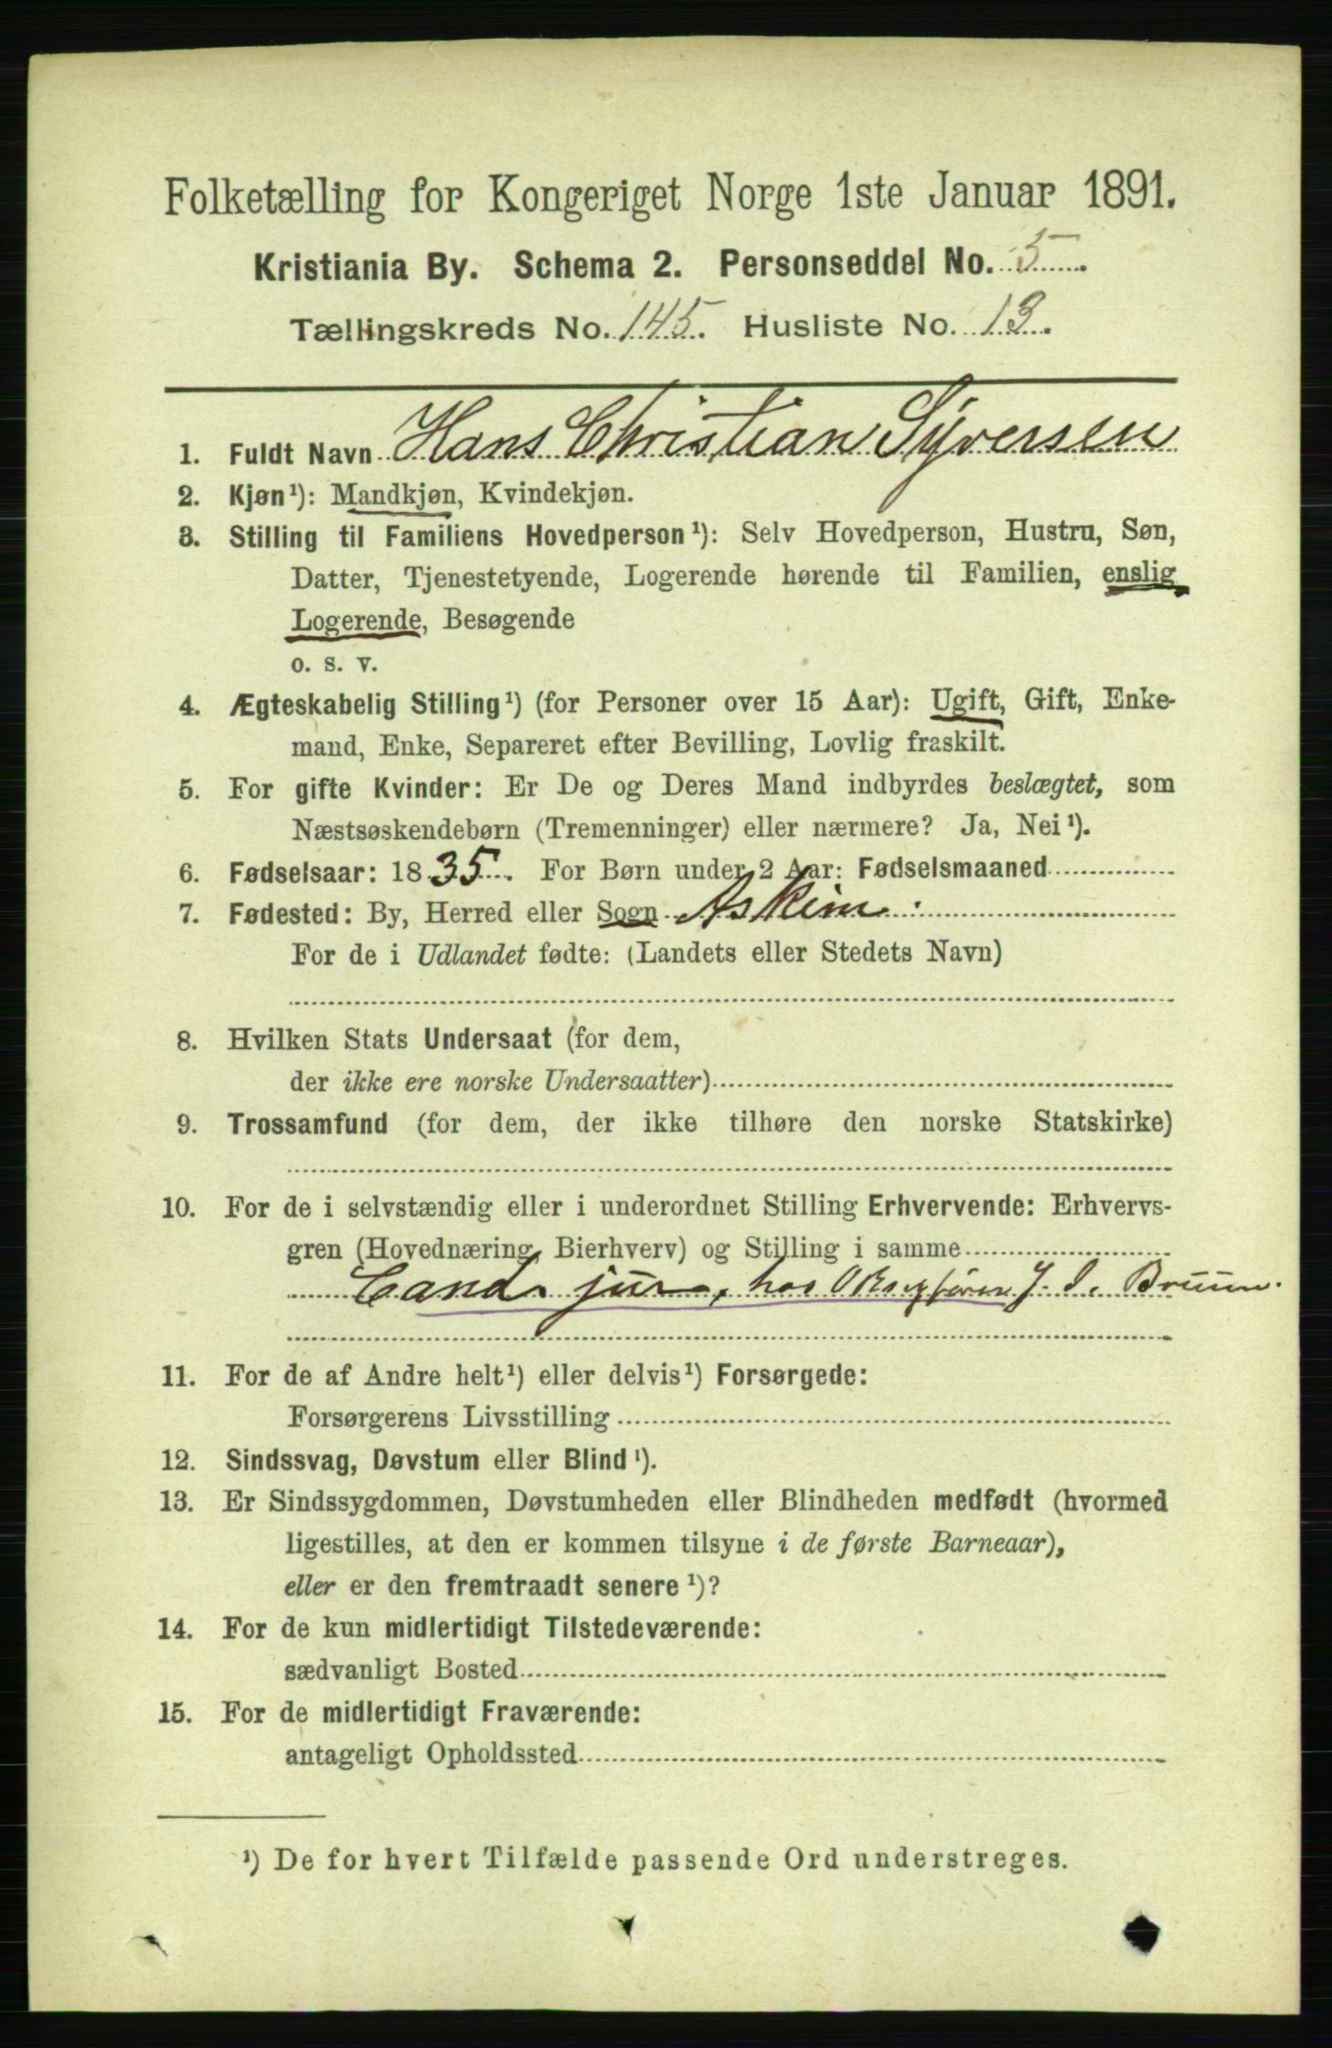 Folketælling for Kongeriget Norge 1ste Januar 1891.
Kristiania By. Schema 2. Personseddel No. 5
Tællingskreds No. 145. Husliste No. 13.
1. Fuldt Navn Hans Christian Syversen
2. Kjøn¹): Mandkjøn, Kvindekjøn.
3. Stilling til Familiens Hovedperson¹): Selv Hovedperson, Hustru, Søn,
Datter, Tjenestetyende, Logerende hørende til Familien, enslig
Logerende, Besøgende
o. s. v.
4. Ægteskabelig Stilling¹) (for Personer over 15 Aar): Ugift, Gift, Enke-
mand, Enke, Separeret efter Bevilling, Lovlig fraskilt.
5. For gifte Kvinder: Er De og Deres Mand indbyrdes beslægtet, som
Næstsøskendebørn (Tremenninger) eller nærmere? Ja, Nei¹).
6. Fødselsaar: 1835. For Børn under 2 Aar: Fødselsmaaned
7. Fødested: By, Herred eller Sogn Askim.
For de i Udlandet fødte: (Landets eller Stedets Navn)
8. Hvilken Stats Undersaat (for dem,
der ikke ere norske Undersaatter)
9. Trossamfund (for dem, der ikke tilhøre den norske Statskirke)
10. For de i selvstændig eller i underordnet Stilling Erhvervende: Erhvervs-
gren (Hovednæring, Bierhverv) og Stilling i samme
Cand. jur., hos J. Bruun.
11. For de af Andre helt¹) eller delvis¹) Forsørgede:
Forsørgerens Livsstilling
12. Sindssvag, Døvstum eller Blind¹).
13. Er Sindssygdommen, Døvstumheden eller Blindheden medfødt (hvormed
ligestilles, at den er kommen tilsyne i de første Barneaar),
eller er den fremtraadt senere¹)?
14. For de kun midlertidigt Tilstedeværende:
sædvanligt Bosted
15. For de midlertidigt Fraværende:
antageligt Opholdssted
¹) De for hvert Tilfælde passende Ord understreges.